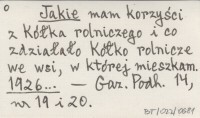 Jakie mam korzyści
z Kółka rolniczego i co
zdziałało Kółko rolnicze
we wsi, w której mieszkam.
1926... — Gaz. Podh. 14,
nr 19 i 20.